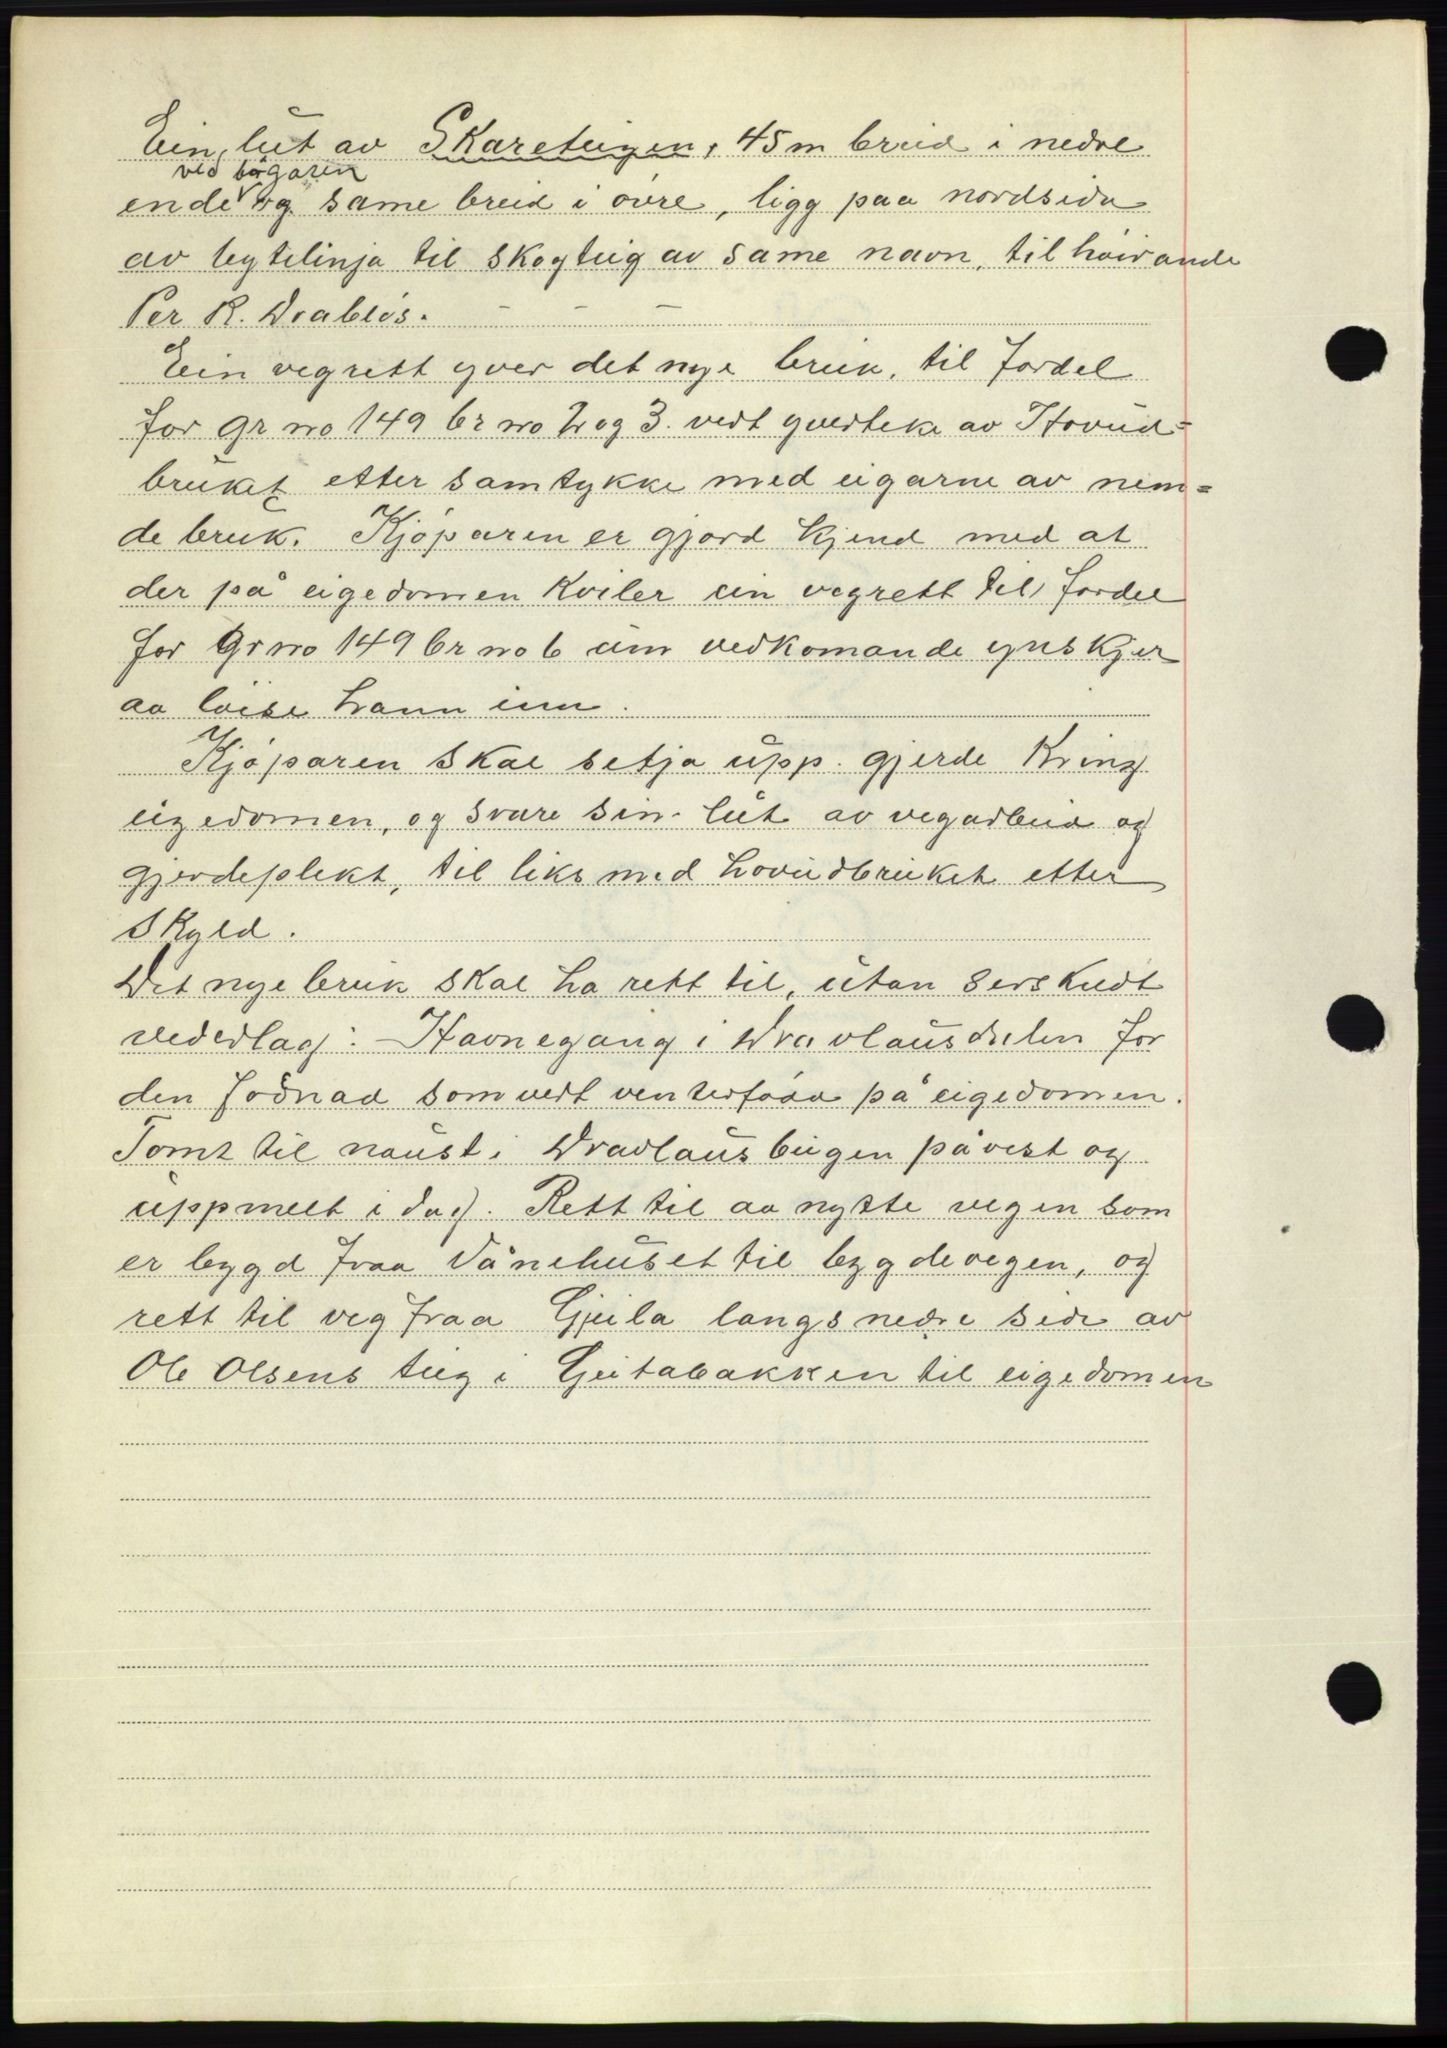 Ein lut av Skareteigen, 45 m breid i nedre
ved bøgaren
ende og same breid i øvre, ligg paa nordsida
av bytelinja til skogteig av same navn, tilhøirande
Per R. Drabløs. — — —
Ein vegrett yver det nye bruk, til fordel
for gr no 149 br no 2 og 3. vert yverteke av Hovud=
bruket etter samtykke med eigarne av nem=
de bruk. Kjøparen er gjord kjend med at
der på eigedomen kviler ein vegrett til fordel
for Gr no 149 br no 6 um vedkomande ynskjer
aa løise hann inn.
Kjøparen skal setja upp gjerde kring
eigedomen, og svare sin lut av vegarbeid og
gjerdeplikt, til liks med hovudbruket etter
skyld.
Det nye bruk skal ha rett til, utan serskudt
vederlag: Havnegang i Dravlausdalen for
den fødnad som vert venterfødd på eigedomen.
Tomt til naust i Dravlausbugen påvist og
uppmelt i dag. Rett til aa nytte vegen som
er bygd fraa Vånehuset til bygdevegen, og
rett til veg fraa Gjeila langs nedre side av
Ole Olsens teig i Geitabakken til eigedomen